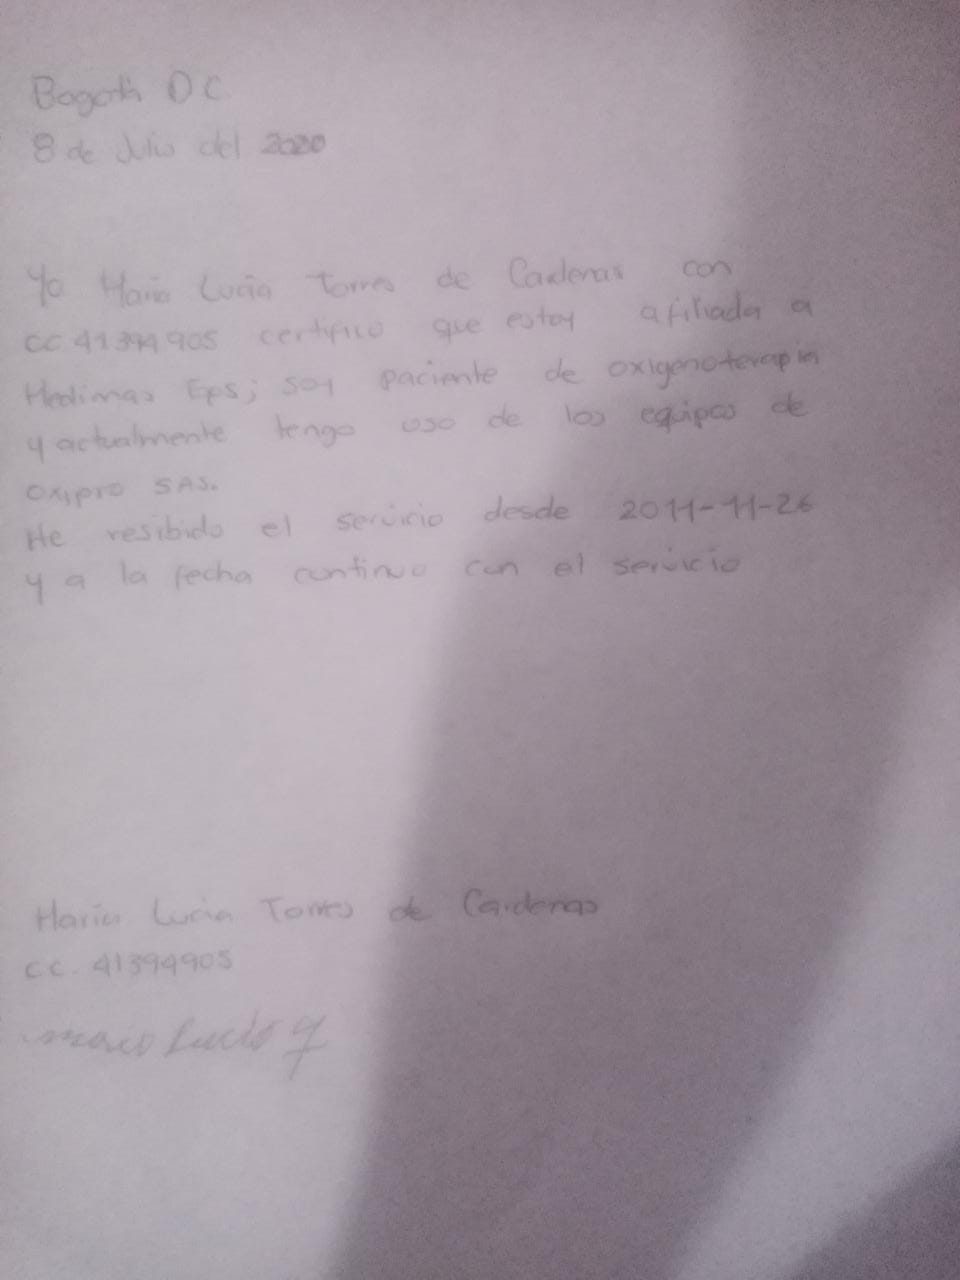 Bogotá D C
8 de Julio del 2020
Yo Maria Lucia Torres de Cardenas con
CC 41394905 certifico que estoy afiliada a
Medimas Eps; soy paciente de oxigenoterapia
y actualmente tengo uso de los equipos de
oxipro SAS.
He resibido el servicio desde 2011-11-26
y a la fecha continuo con el servicio
Maria Lucia Torres de Cardenas
CC. 41394905
maria Lucia